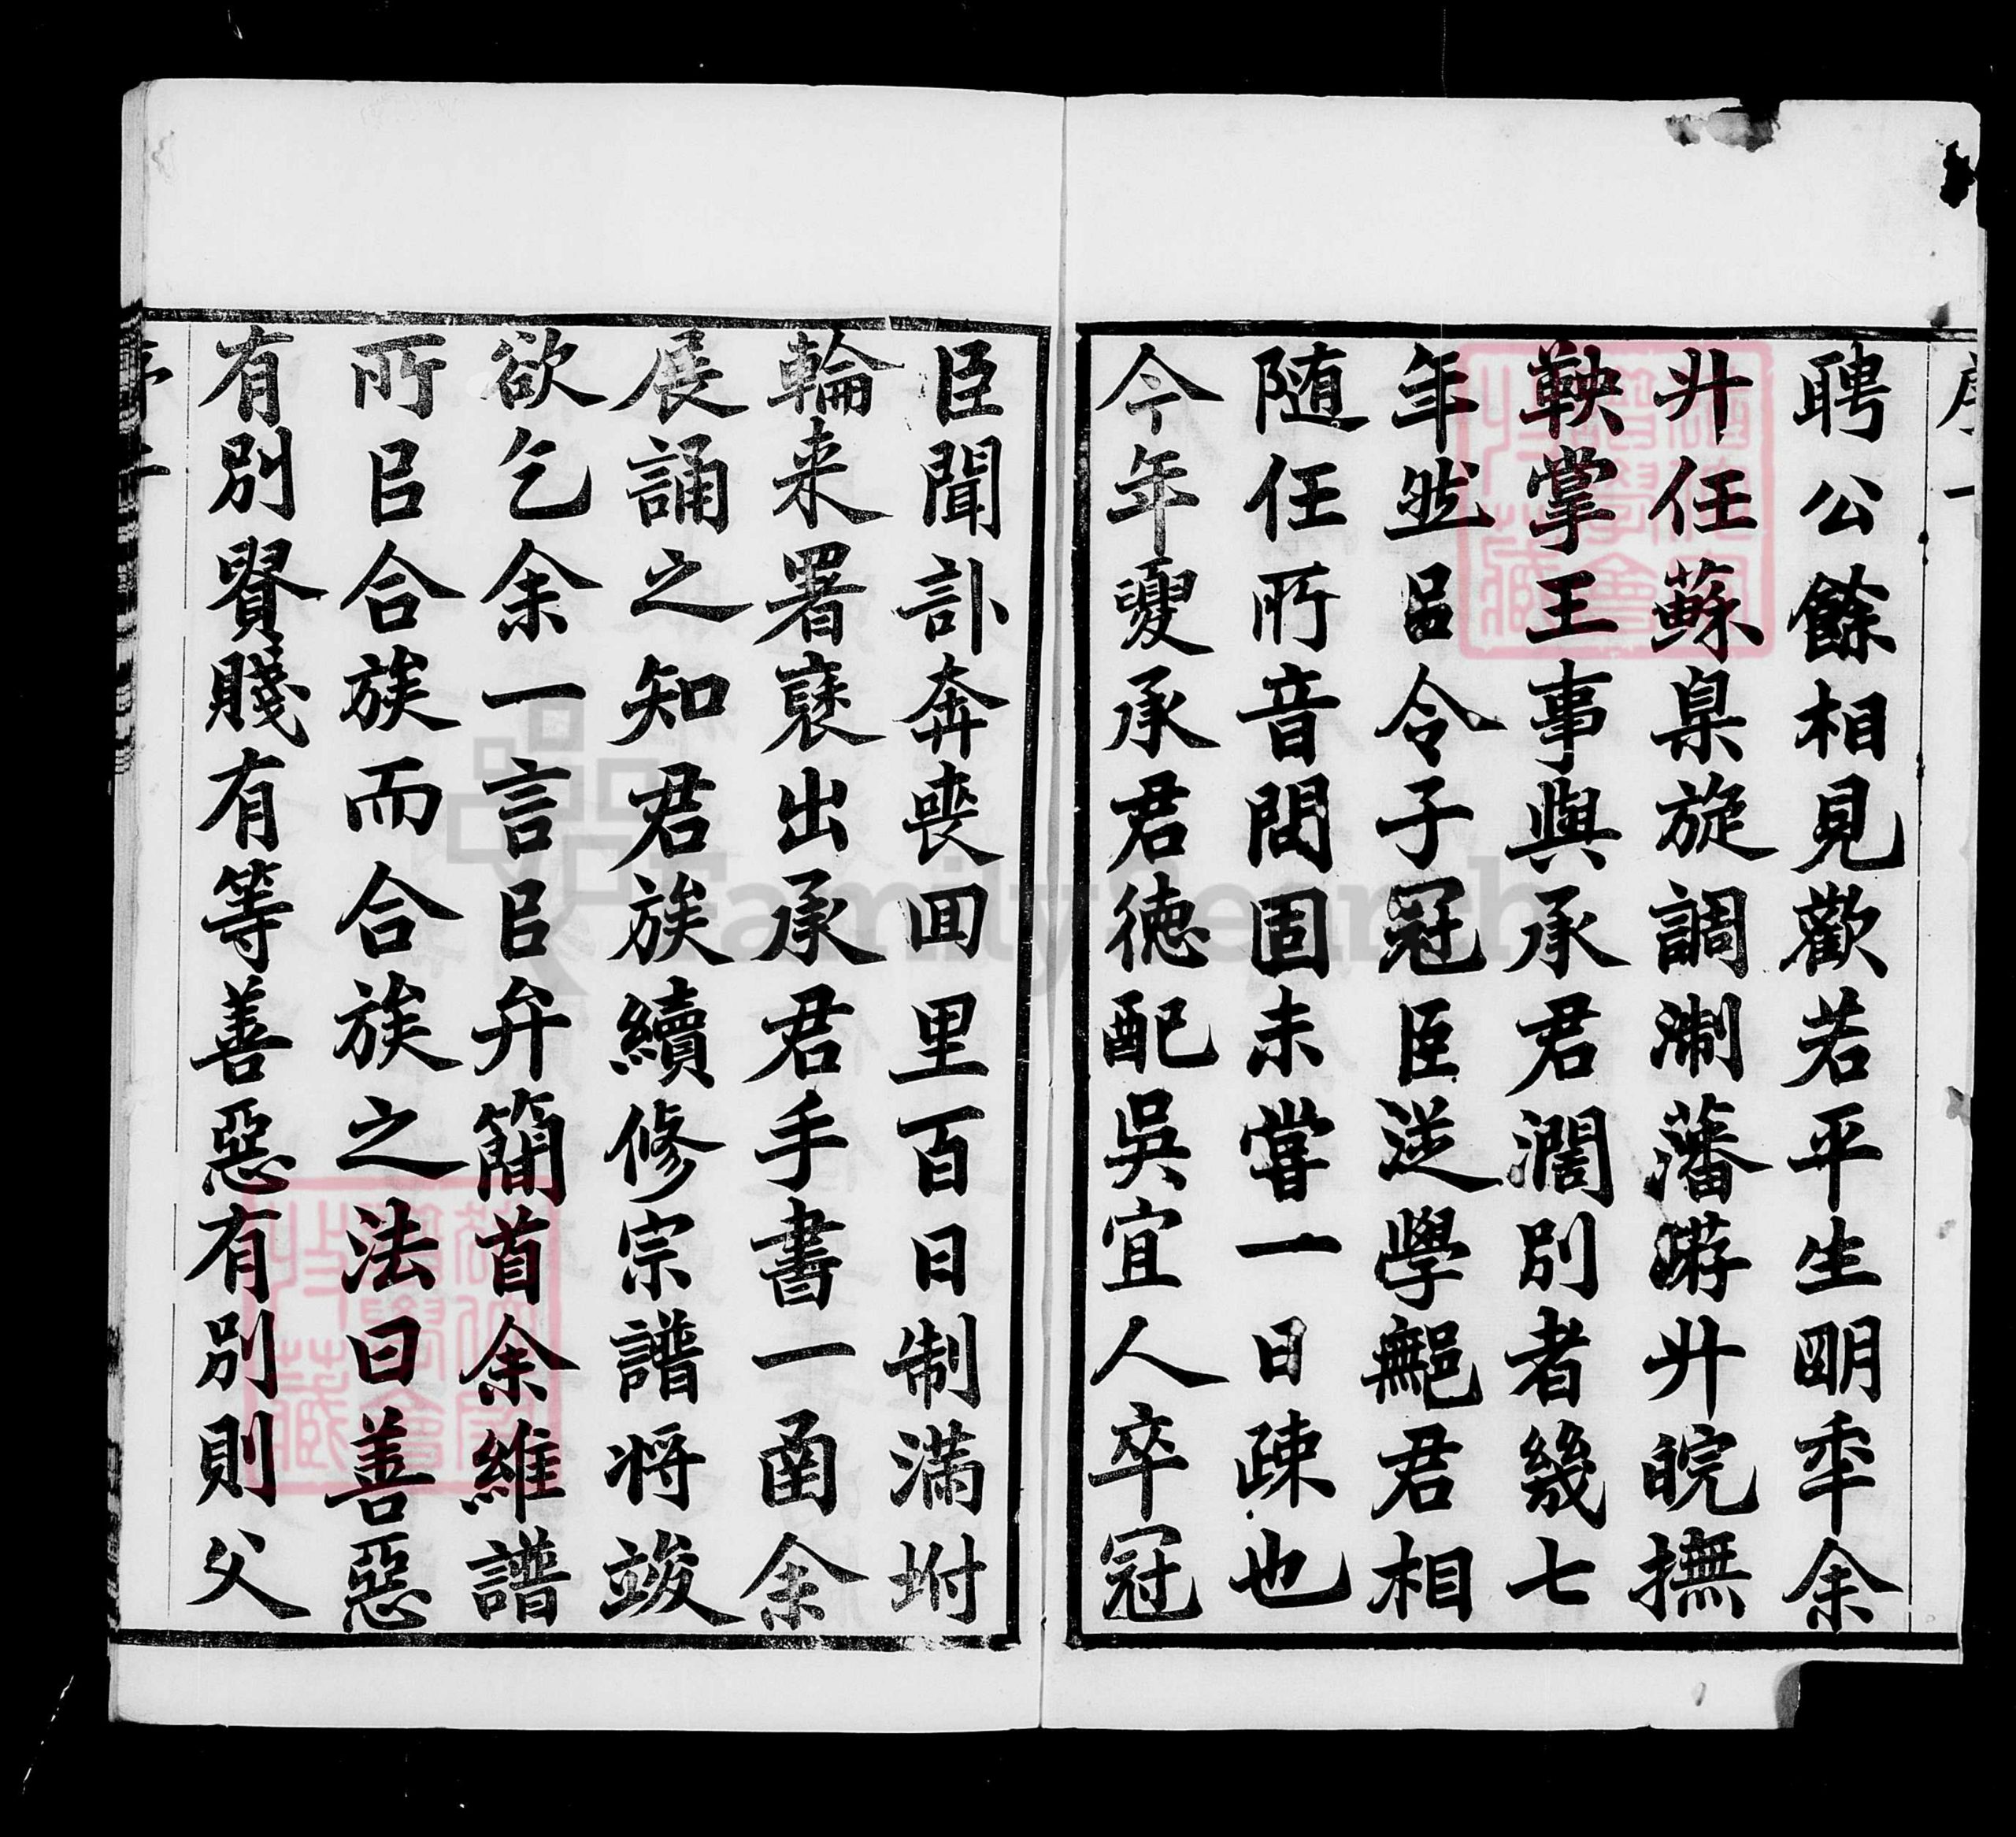 序一
聘公餘相見歡若平生明年余
廾任蘇臬旋調淛藩游廾皖撫
鞅掌王事與承君濶別者幾七
年然㠯令子冠臣從學鄦君相
随任所音問固未嘗一日疎也
今年夏承君德配吳宜人卒冠
臣聞訃奔喪囬里百日制滿坿
輪来署褎出承君手書一函余
展誦之知君族續修宗譜将竣
欲乞余一言㠯弁簡首余維譜
所㠯合族而合族之法曰善惡
有別賢賤有等善惡有別則父
序二
FamilySearch